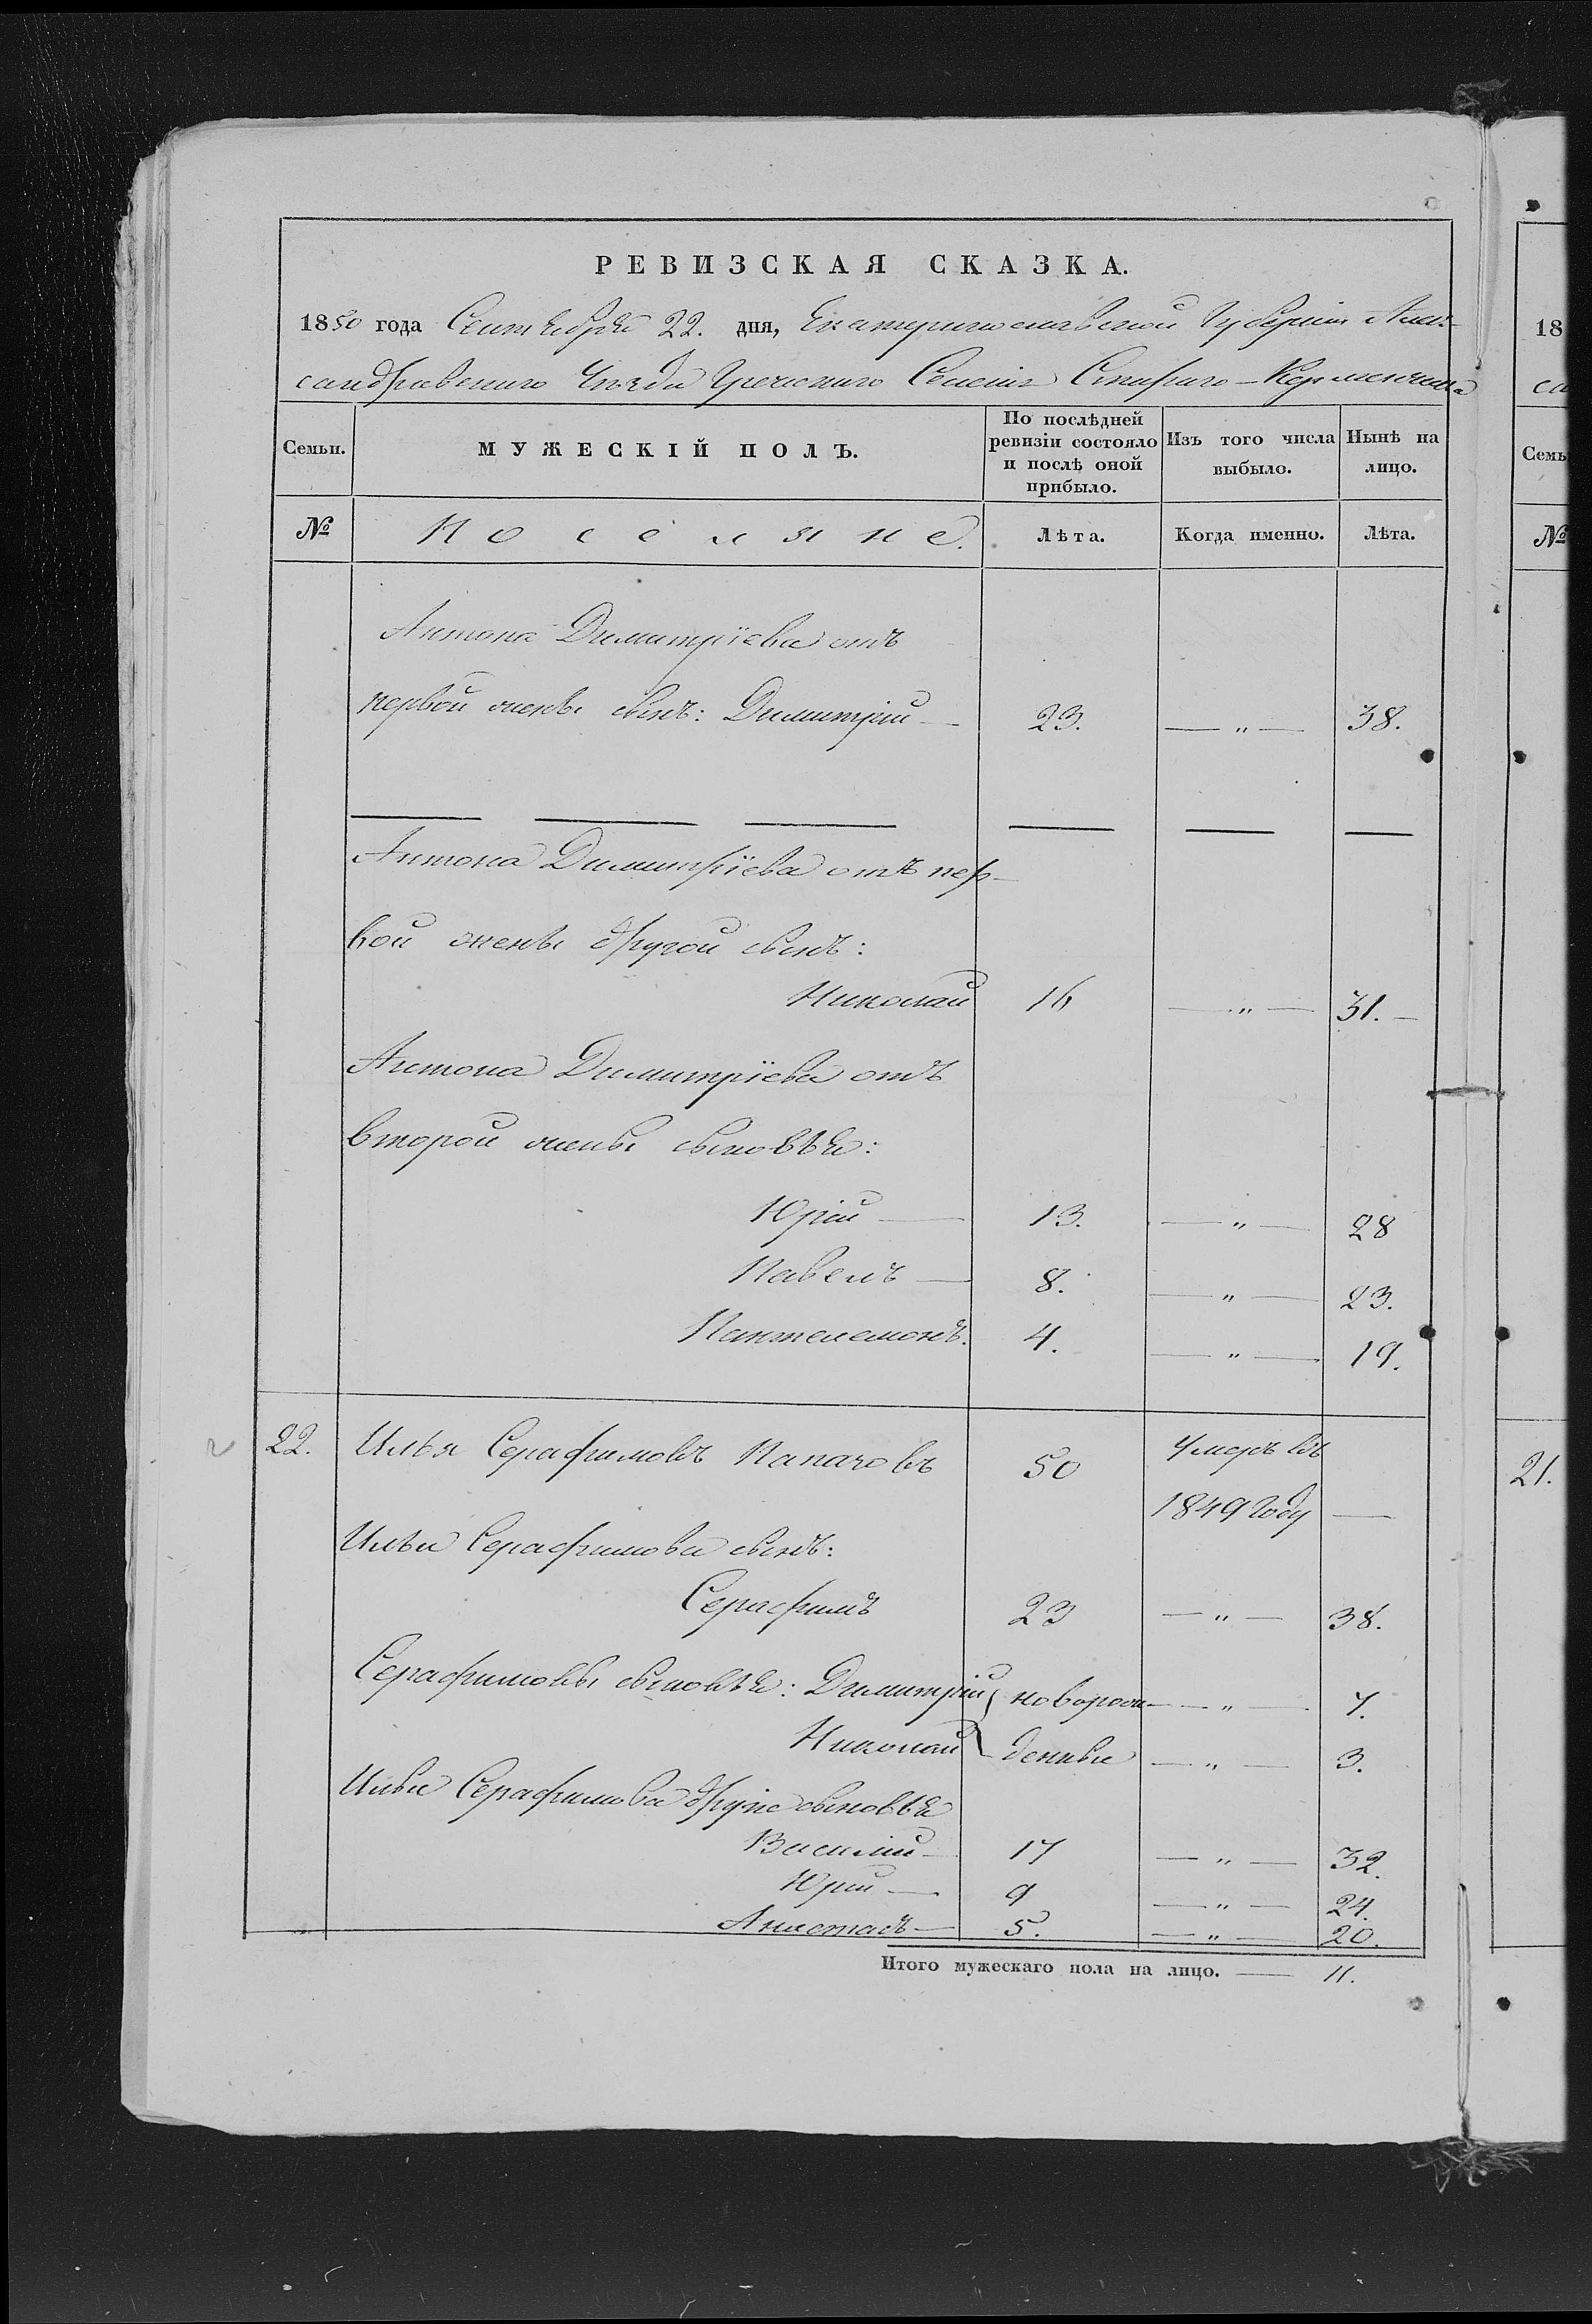 РЕВИЗСКАЯ СКАЗКА.
1850 года Сентебрѣ 22. дня, Екатеринославской Губерніи Алек-
сандравскаго Уѣзда Греческаго Селенія Стараго-Керменчика
Семьи.
МУЖЕСКІЙ ПОЛЪ.
По послѣдней ревизіи состояло и послѣ оной прибыло.
Изъ того числа выбыло.
Нынѣ на лицо.
№ Поселяне. Лѣта. Когда именно. Лѣта.
Антона Димитріева отъ
первой жены сынъ: Димитрій — 23. — „ — 38.
Антона Димитріева отъ пер-
вой жены другой сынъ:
Николай 16 — „ — 31. —
Антона Димитріева отъ
второй жены сыновѣя:
Юрій — 13. — „ — 28
Павелъ — 8. — „ — 23.
Пантелемонъ. 4. — „ — 19.
22. Илья Серафимовъ Папачовъ 50 Умеръ въ
1849 году —
Ильи Серафимова сынъ:
Серафимъ 23 — „ — 38.
Серафимовы сыновѣя: Димитрій новорож- — „ — 7.
Николай денные — „ — 3.
Ильи Серафимова другіе сыновѣя
Василій — 17 — „ — 32.
Юрій — 9 — „ — 24.
Анастасъ — 5. — „ — 20.
Итого мужескаго пола на лицо. — 11.
18
са
Семь
№
21.